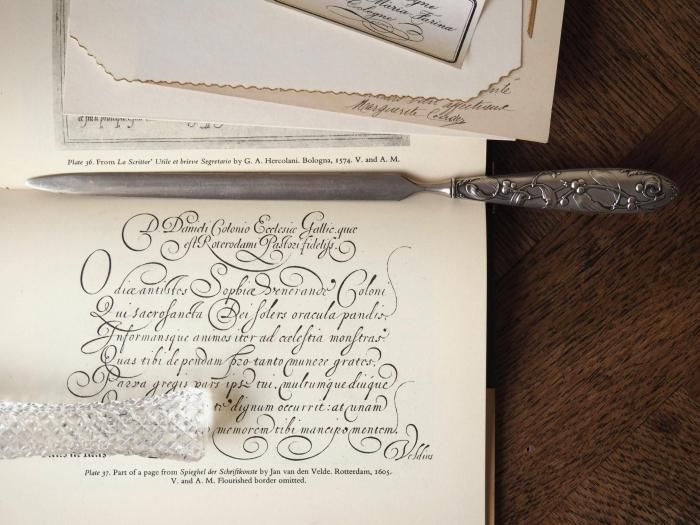 Maria Farina
Cologne
Marguerite
Plate 36. From Lo Scrittor' Utile et brieve Segretario by G. A. Hercolani. Bologna, 1574. V. and A. M.
D. Danieli Colonio Ecclesiæ Gallicque
est Roterodami Pastori fideliss.
O diæ antistes Sophiæ venerande Coloni
Qui sacrosancta Dei solers oracula pandis,
Informansque animos iter ad cælestia monstras
Quas tibi dependam pro tanto munere grates,
Parva gregis pars ipse tui, multumque diuque
dignum occurrit: at unam
memorem tibi mancipo mentem.
Veldius
Plate 37. Part of a page from Spieghel der Schrijfkonste by Jan van den Velde. Rotterdam, 1605.
V. and A. M. Flourished border omitted.